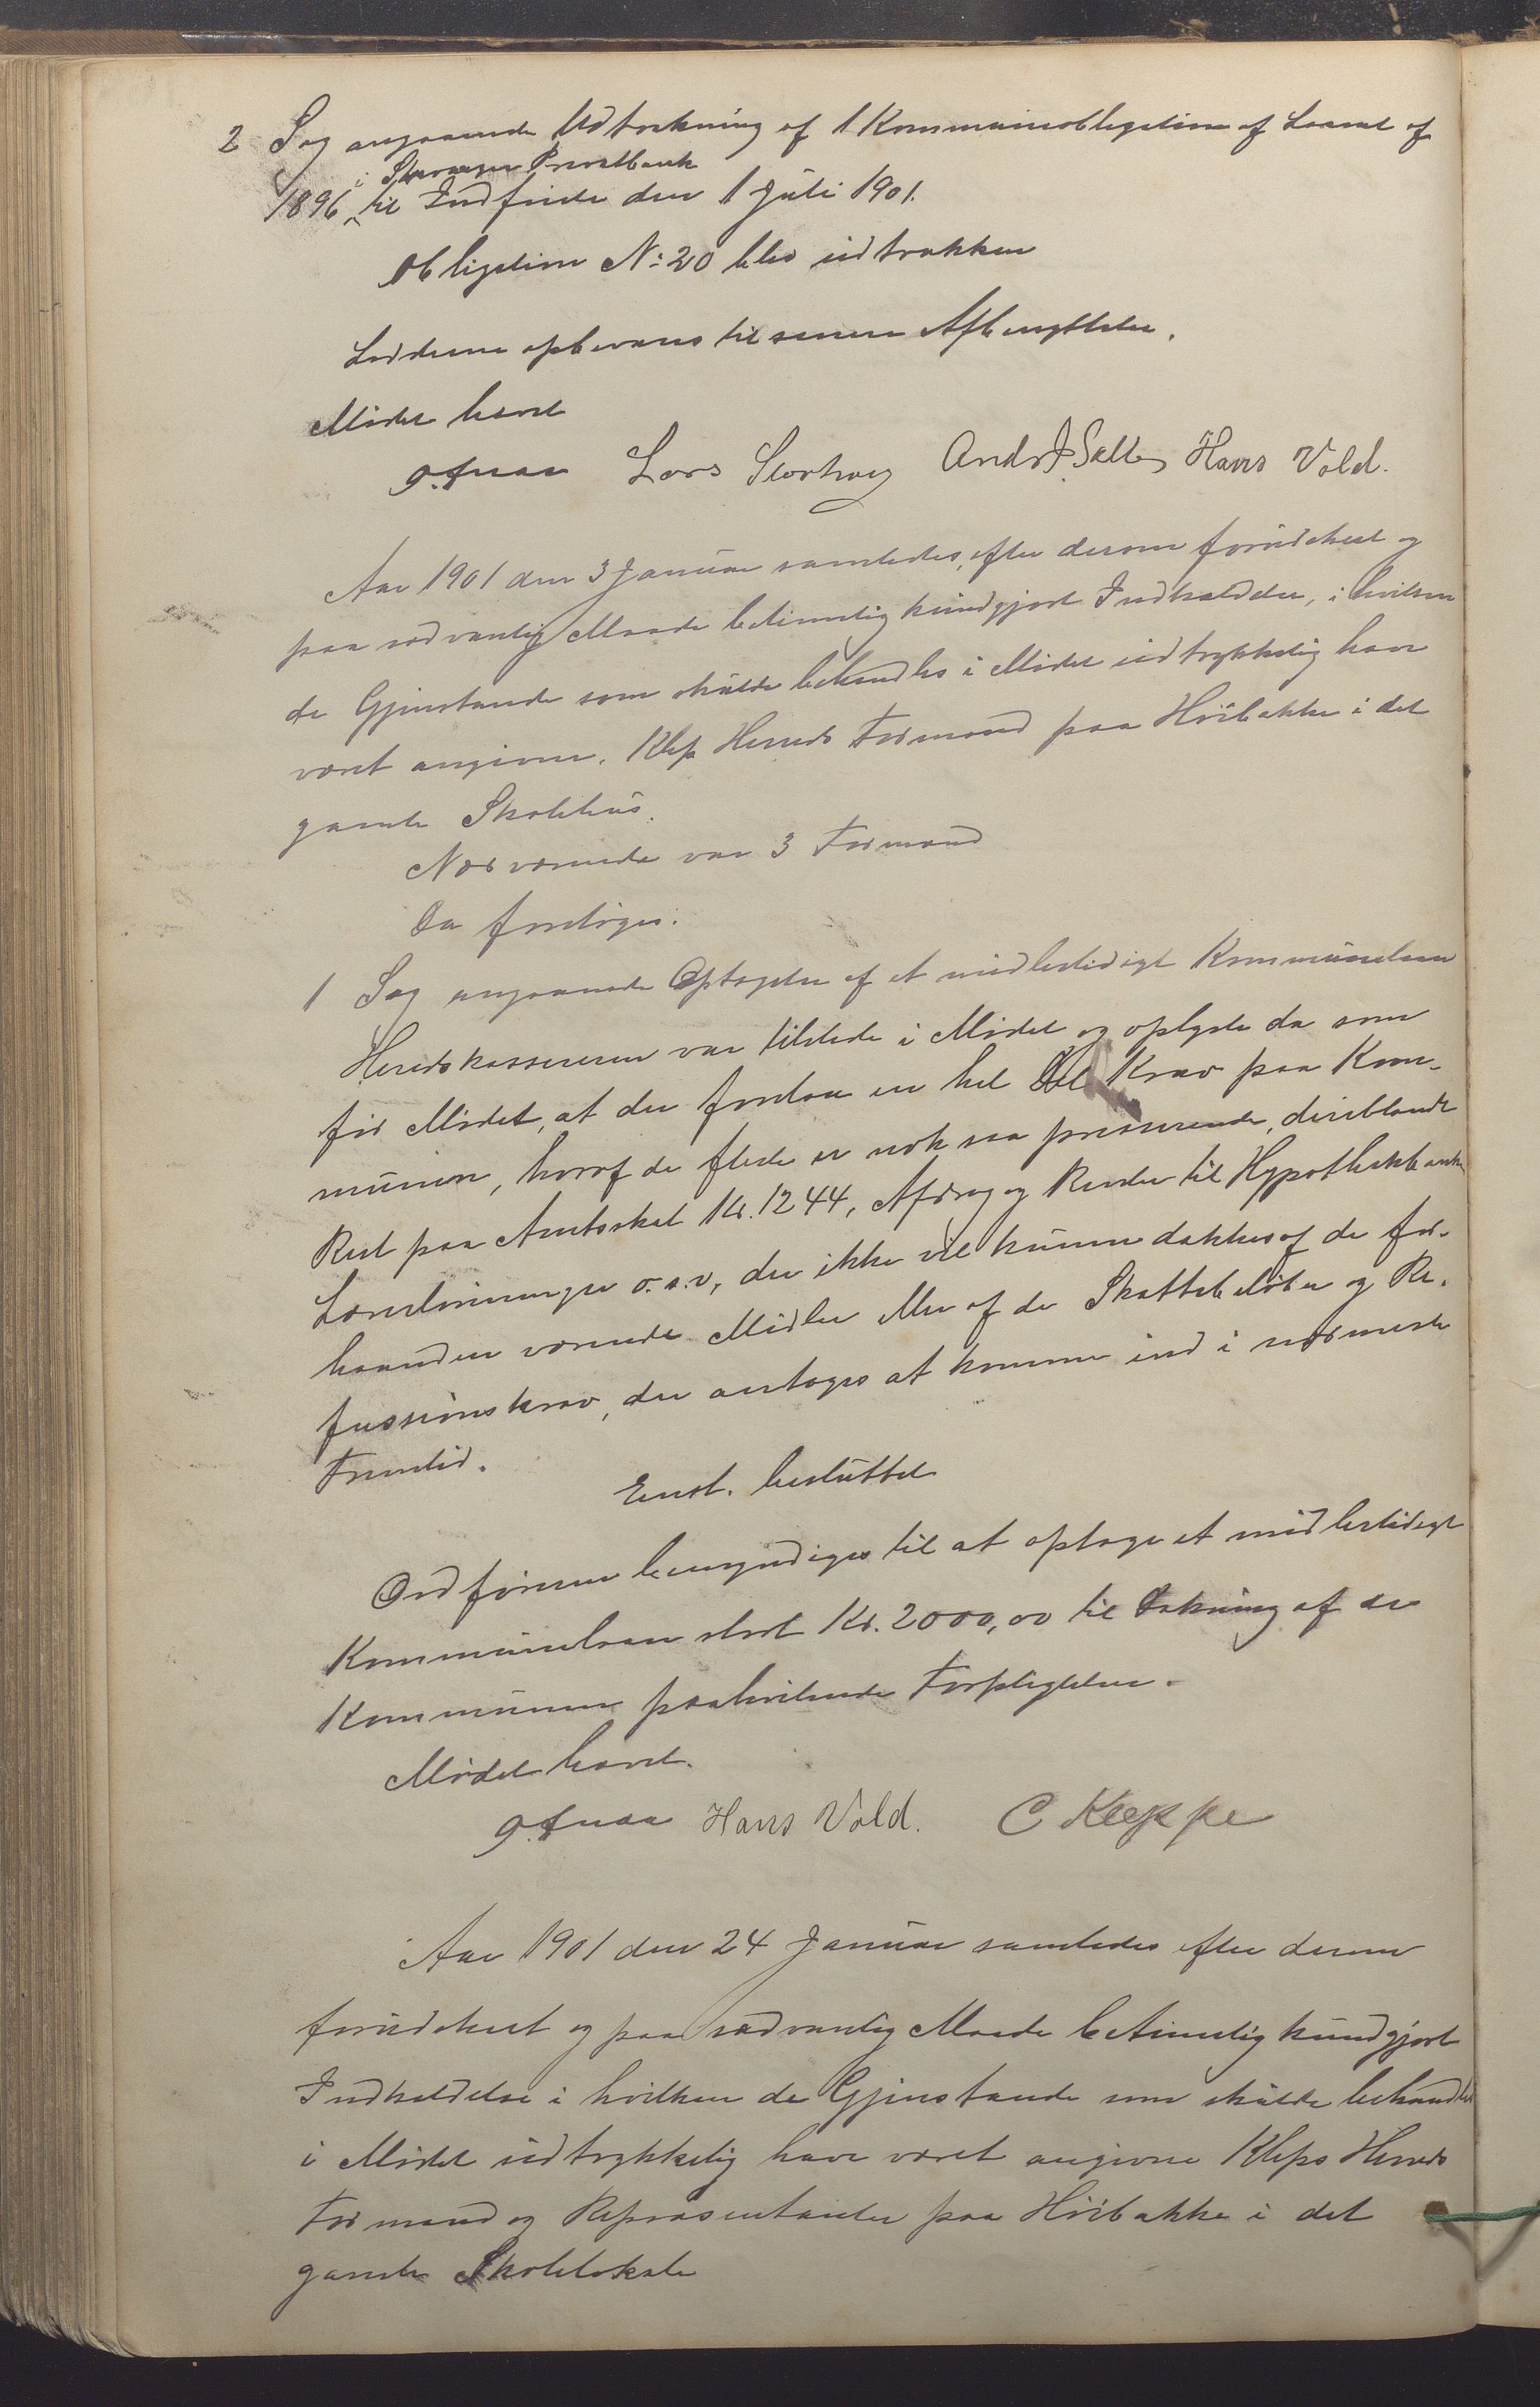 2 Sag angaaende Udtrækning af 1 Kommuneobligation af Laanet af
i Stavanger Privatbank
1896 til Indfrielse den 1 Juli 1901.
Obligation No: 20 blev udtrukken
Lodderne opbevares til senere Afbenyttelse.
Mødet hævet
Lars Storhoug Andr J. Salte Hans Vold.
Aar 1901 den 3 Januar samledes, efter derom forudskeet og
paa sædvanlig Maade betimelig kundgjort Indkaldelse, i hvilken
de Gjenstande som skulde behandles i Mødet udtrykkelig have
været angivne, Klep Herreds Formænd paa Høibakke i det
gamle Skolehus.
Nærværende var 3 Formænd
Da foretoges:
1 Sag angaaende Optagelse af et midlertidigt Kommunelaan
Herredskassereren var tilstede i Mødet og oplyste da som
før Mødet, at der forelaa en hel Del Krav paa Kom-
munen, hvoraf de fleste er nok saa presserende, deriblandt
Rest paa Amtsskat Kr. 1244, Afdrag og Renter til Hypothekbanken
Lærerlønninger o.s.v, der ikke vil kunne dækkes af de for-
haanden værende Midler eller af de Skattebeløber og Re-
fusionskrav, der antages at komme ind i nærmeste
Fremtid.
Enst. besluttet
Ordføreren bemyndiges til at optage et midlertidigt
Kommunelaan stort Kr. 2000,00 til Dækning af de
Kommunen paahvilende Forpligtelser.
Mødet hævet.
Hans Vold. C Kleppe
Aar 1901 den 24 Januar samledes efter derom
forudskeet og paa sædvanlig Maade betimelig kundgjort
Indkaldelse i hvilken de Gjenstande som skulde behandles
i Mødet udtrykkelig have været angivne Kleps Herreds
Formænd og Repræsentanter paa Høibakke i det
gamle Skolelokale